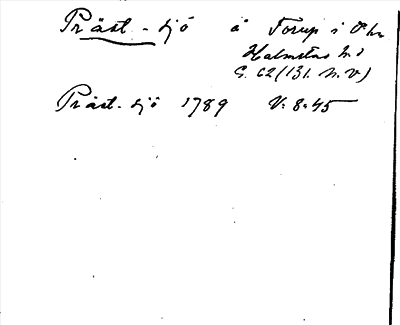 Präst-sjö å Torup i Ö hn
Halmstad hd
G. C2 (131. N. V.)
Präst-sjö 1789 V: 8:45